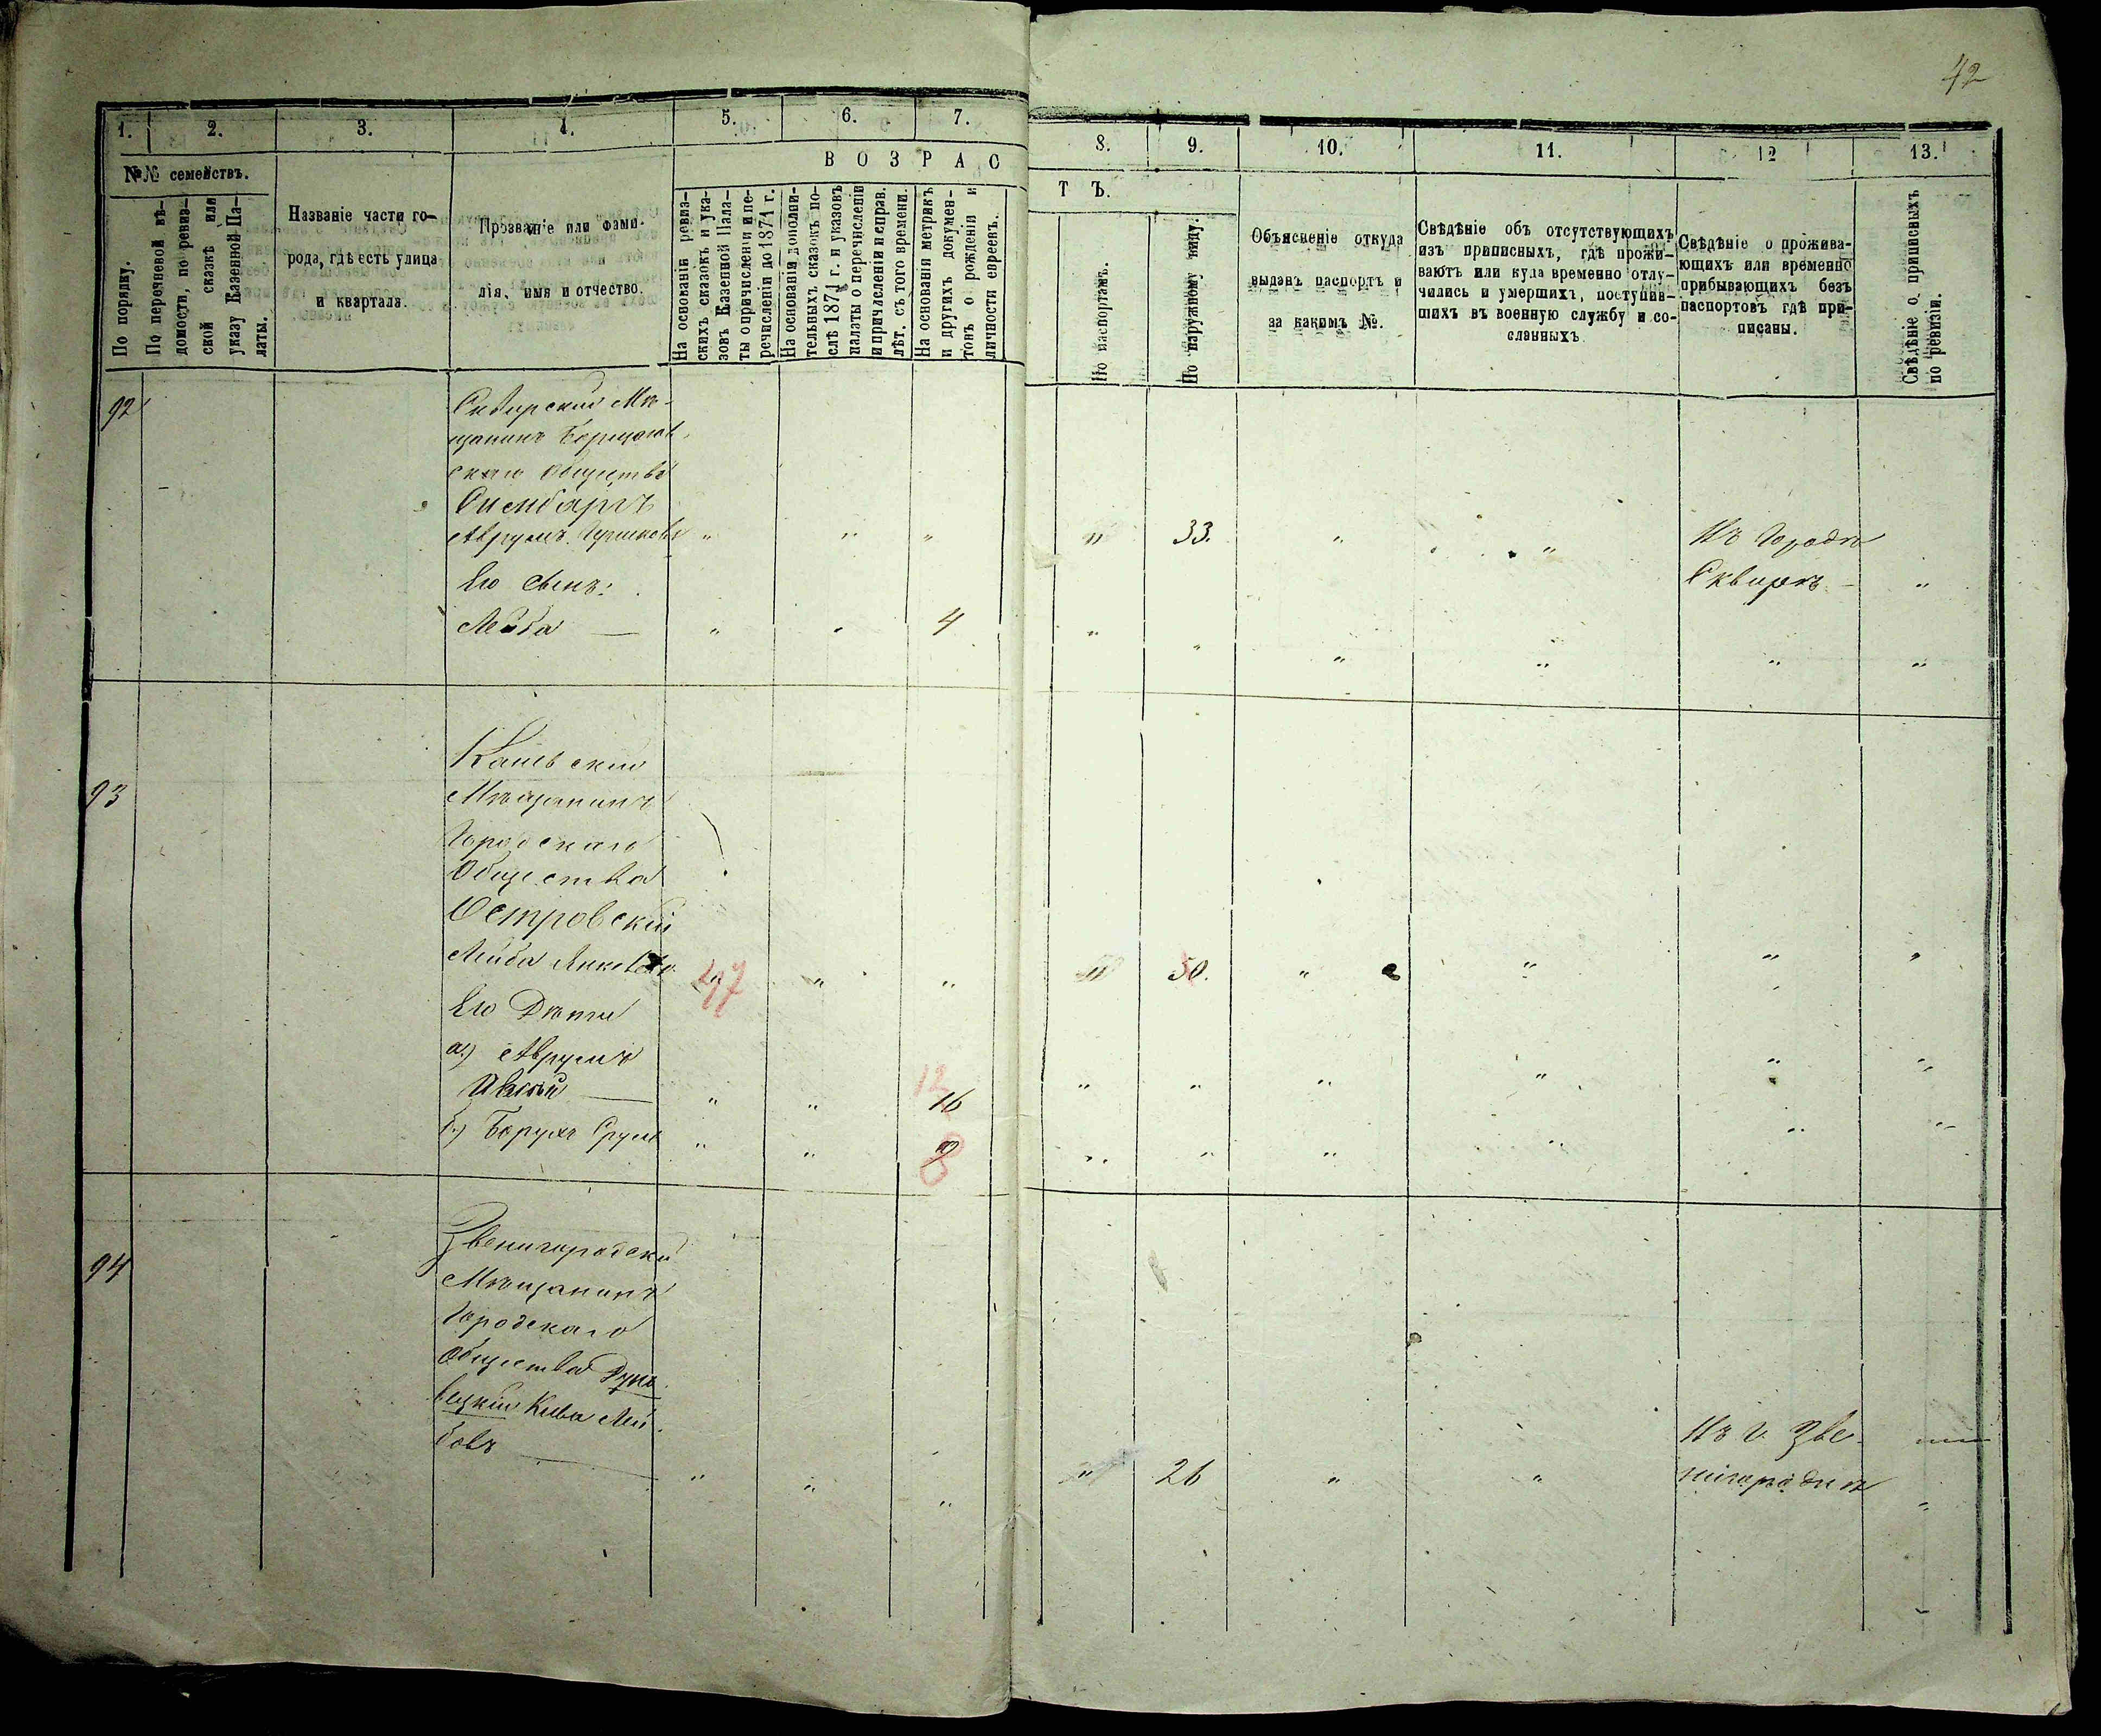 42
1. 2. 3. 4. 5. 6. 7. 8. 9. 10. 11. 12 13.
№№ семействъ.
В О З Р А С Т Ъ.
По порядку.
По перечневой вѣ-
домости, по ревиз-
ской сказкѣ или
указу Казенной Па-
латы.
Названіе части го-
рода, гдѣ есть улица
и квартала.
Прозваніе или фами-
лія, имя и отчество.
На основаніи ревиз-
скихъ сказокъ и ука-
зовъ Казенной Пала-
ты о причисленіи и пе-
речисленіи до 1874 г.
На основаніи дополни-
тельныхъ сказокъ по-
слѣ 1874 г. и указовъ
палаты о перечисленіи
и причисленіи и справ.
лѣт. съ того времени.
На основаніи метрикъ
и другихъ докумен-
товъ о рожденіи и
личности евреевъ.
По паспортамъ.
По наружному виду.
Объясненіе откуда
выданъ паспортъ и
за какимъ №.
Свѣдѣніе объ отсутствующихъ
изъ приписныхъ, гдѣ прожи-
ваютъ или куда временно отлу-
чились и умершихъ, поступив-
шихъ въ военную службу и со-
сланныхъ
Свѣдѣніе о прожива-
ющихъ или временно
прибывающихъ безъ
паспортовъ гдѣ при-
писаны.
Свѣдѣніе о приписныхъ
по ревизіи.
92
Сквирскій Мѣ-
щанинъ
скаго Общества
Аврумъ " " " " 33. " " Въ Городѣ
Его Сынъ: Сквирѣ – "
Лейба — " " 4 " " " " " "
93
Каневскій
Мѣщанинъ
Городскаго
Общества
Островскій
Лейба Янкелев 47 " " " 50. " " " "
Его Дѣти
а.) Аврумъ
— " " 12 16 " " " " " "
б.) Борухъ Срулъ " " 8 " " " " " "
94
Звенигородскій
Мѣщанинъ
Городскаго
Общества
Лей-
бовъ — " " " " 26 " " Въ г. Зве-
нигородкѣ "